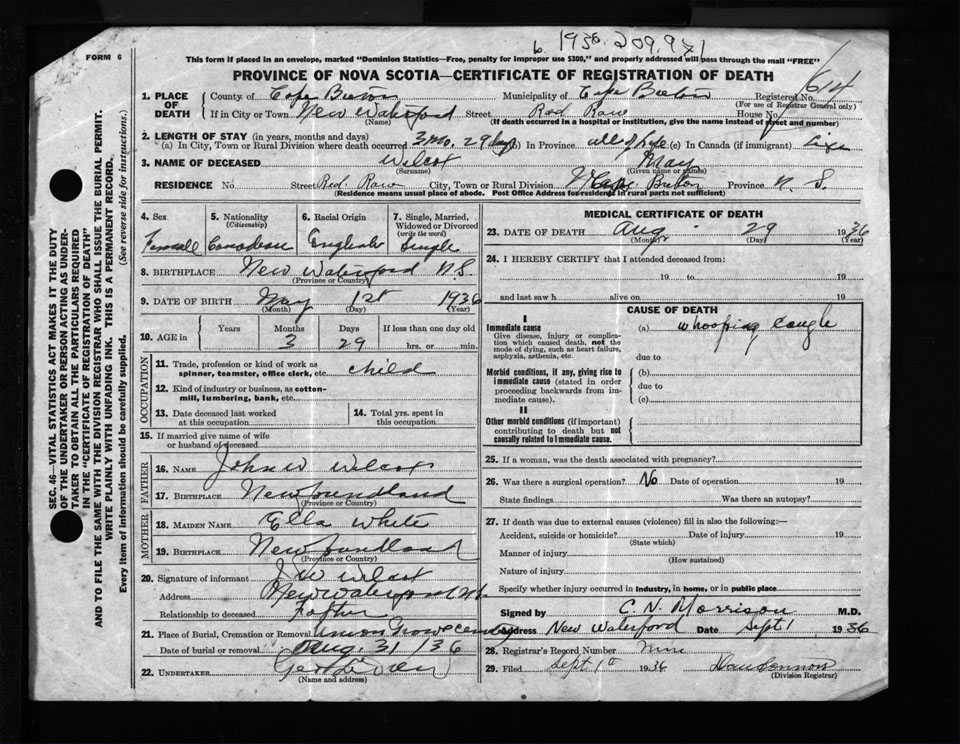 FORM 6
1936. 209.971
614
This form if placed in an envelope, marked "Dominion Statistics—Free, penalty for improper use $300," and properly addressed will pass through the mail "FREE"
PROVINCE OF NOVA SCOTIA—CERTIFICATE OF REGISTRATION OF DEATH
1. PLACE OF DEATH County of Cape Breton Municipality of Cape Breton Registered No. (For use of Registrar General only)
If in City or Town New Waterford (Name) Street Red Row House No.
(If death occurred in a hospital or institution, give the name instead of street and number)
2. LENGTH OF STAY (in years, months and days)
(a) In City, Town or Rural Division where death occurred 3 mo. 29 days (b) In Province all of life (c) In Canada (if immigrant) Life
3. NAME OF DECEASED Wilcox (Surname) May (Given name or names)
RESIDENCE No. Street Red. Raw City, Town or Rural Division Cape Breton Province N. S.
(Residence means usual place of abode. Post Office Address for residents in rural parts not sufficient)
4. Sex 5. Nationality (Citizenship) 6. Racial Origin 7. Single, Married, Widowed or Divorced (write the word)
Femall Canadian English Single
8. BIRTHPLACE New Waterford N.S.
(Province or Country)
9. DATE OF BIRTH May 1st 1936
(Month) (Day) (Year)
10. AGE in Years Months Days If less than one day old
3 29 hrs. or min.
OCCUPATION
11. Trade, profession or kind of work as spinner, teamster, office clerk, etc. child
12. Kind of industry or business, as cotton-mill, lumbering, bank, etc.
13. Date deceased last worked at this occupation
14. Total yrs. spent in this occupation
15. If married give name of wife or husband of deceased
FATHER
16. NAME John W Wilcox
17. BIRTHPLACE Newfoundland
(Province or Country)
MOTHER
18. MAIDEN NAME Ella White
19. BIRTHPLACE Newfoundland
(Province or Country)
20. Signature of informant J W Wilcox
Address New Waterford N.S.
Relationship to deceased Father
21. Place of Burial, Cremation or Removal Union Grove cemetry
Date of burial or removal Aug. 31/36
22. UNDERTAKER
(Name and address)
MEDICAL CERTIFICATE OF DEATH
23. DATE OF DEATH Aug 29 1936
(Month) (Day) (Year)
24. I HEREBY CERTIFY that I attended deceased from:
19 to 19
and last saw h alive on 19
CAUSE OF DEATH
I
Immediate cause
Give disease, injury or complication which caused death, not the mode of dying, such as heart failure, asphyxia, asthenia, etc.
(a) whooping cough
due to
Morbid conditions, if any, giving rise to immediate cause (stated in order proceeding backwards from immediate cause).
(b)
due to
(c)
II
Other morbid conditions (if important) contributing to death but not causally related to immediate cause.
25. If a woman, was the death associated with pregnancy?
26. Was there a surgical operation? No Date of operation 19
State findings Was there an autopsy?
27. If death was due to external causes (violence) fill in also the following:—
Accident, suicide or homicide? Date of injury 19
(State which)
Manner of injury
(How sustained)
Nature of injury
Specify whether injury occurred in Industry, in home, or in public place
Signed by C. N. Morrison M.D.
Address New Waterford Date Sept 1 1936
28. Registrar's Record Number
29. Filed Sept 1st 1936
(Division Registrar)
SEC. 46—VITAL STATISTICS ACT MAKES IT THE DUTY
OF THE UNDERTAKER OR PERSON ACTING AS UNDER-
TAKER TO OBTAIN ALL THE PARTICULARS REQUIRED
IN THE "CERTIFICATE OF REGISTRATION OF DEATH"
AND TO FILE THE SAME WITH THE DIVISION REGISTRAR WHO SHALL ISSUE THE BURIAL PERMIT.
WRITE PLAINLY WITH UNFADING INK. THIS IS A PERMANENT RECORD.
Every item of information should be carefully supplied. (See reverse side for instructions.)